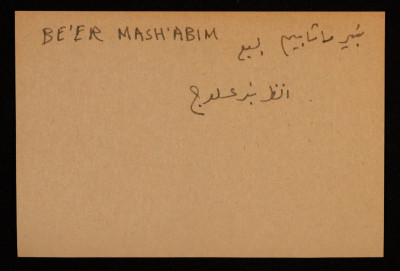 BE'ER MASH'ABIM بئير ماشابيم
انظر بئر عسلوج